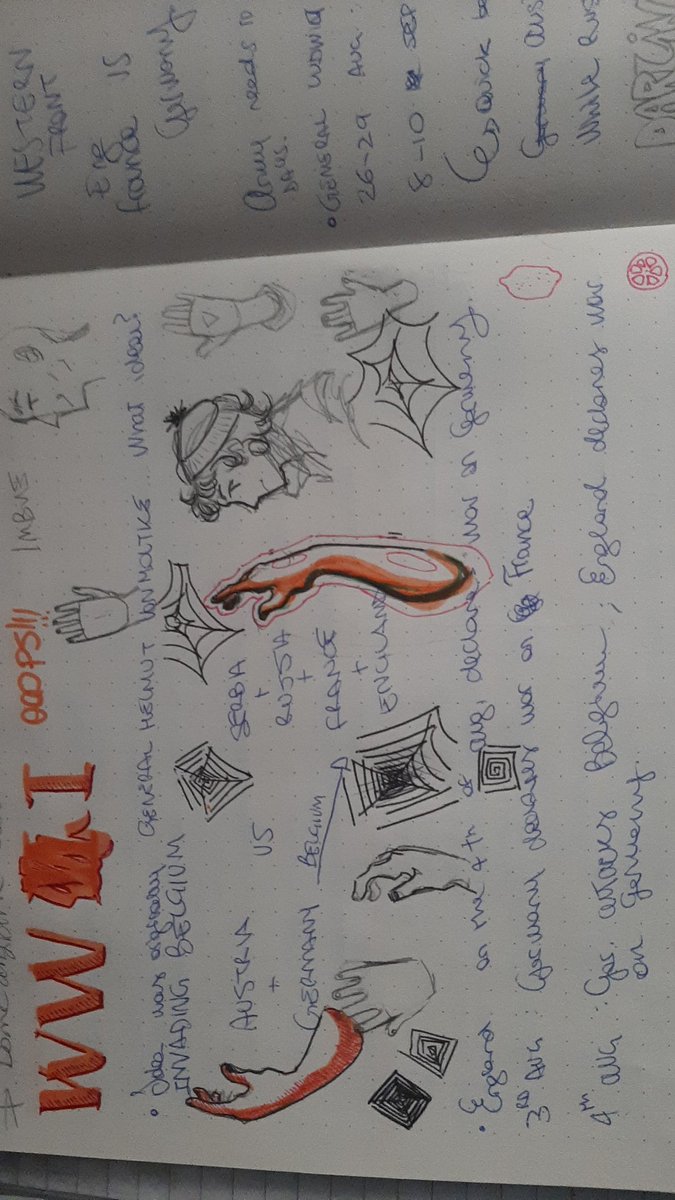 WW I OOOPS!!! IMBUE
• Idea was originally GENERAL HELMUT VONMOLTKE. What idea?
INVADING BELGIUM
AUSTRIA
+
GERMANY
VS
SERBIA
+
RUSSIA
+
FRANCE
+
ENGLAND
BELGIUM
• England on the 4th of aug, declares war on Germany.
3RD AUG : Germany declares war on France
4TH AUG : Ger. attacks Belgium ; England declares war
on Germany.
WESTERN
FRONT
Eng
france is
Germany
Army needs to
DAYS.
• GENERAL
26-29 AUG :
8-10 SEP
Quick be
aus
While Rus